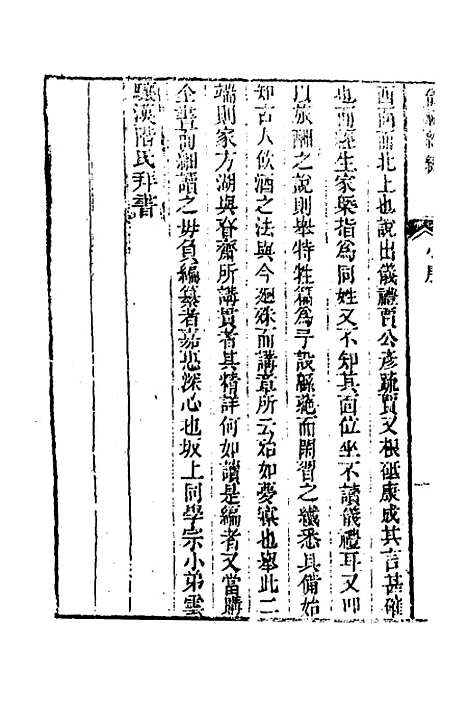 小序
西面北上也說出儀禮賈公彥疏賈又根砥康成其言甚確
也而經生家槩指為同姓又不知其面位坐不讀儀禮耳又即
以旅酬之說則舉特牲篇為予設緜蕝而閑習之纖悉具備始
知古人飲酒之法與今廻殊而講章所云殆如夢寱也舉此二
端則家方湖與脊齋所講貫者其精詳何如讀是編者又當購
全書而細讀之毋負編纂者嘉惠深心也坂上同學宗小弟雲
驤漢階氏拜書